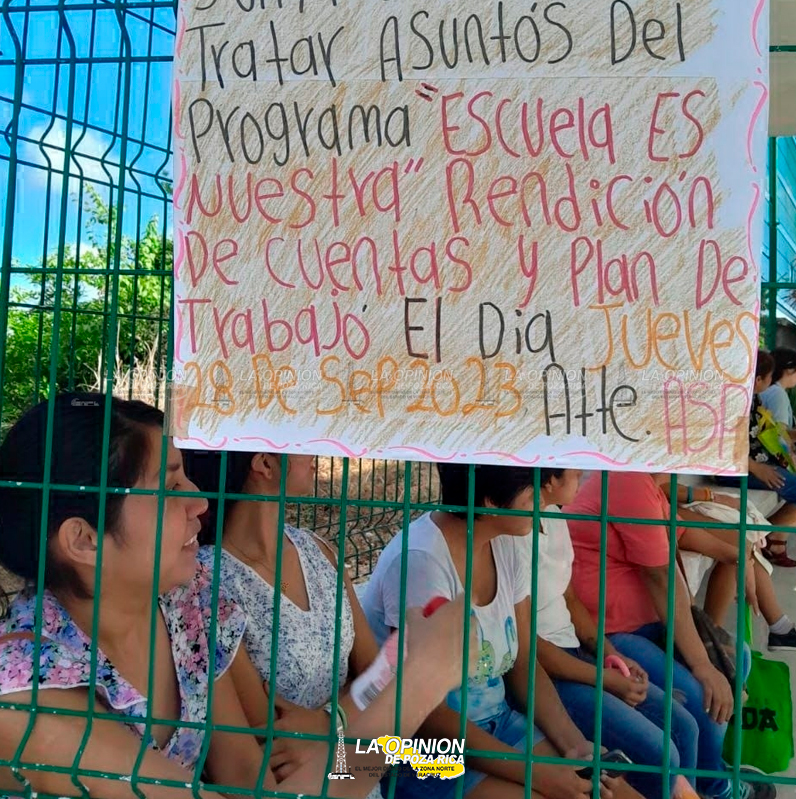 Tratar Asuntos Del
Programa "Escuela Es
Nuestra" Rendición
De cuentas y Plan De
Trabajo El Dia Jueves
28 De Sep 2023 Atte. ASP
LA OPINION LA OPINION LA OPINION LA OPINION
LA OPINION
DE POZA RICA
DA